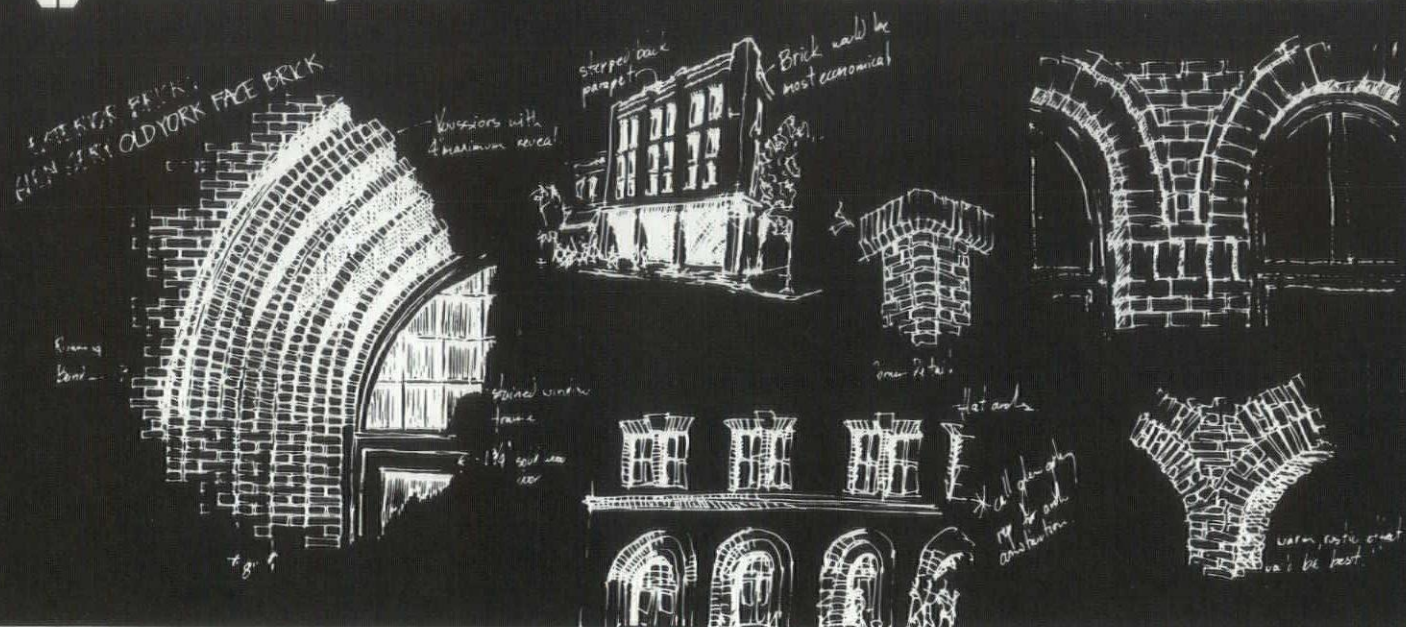 EXTERIOR BRICK:
GLEN-GERY OLD YORK FACE BRICK
Voussiors with
4" maximum reveal
stepped back
parapet
Brick would be
most economical
Running
Bond
stained window
frame
1 3/4" solid
door
8"
flat arch
* call glen-gery
rep for arch
construction
warm, rustic effect
would be best!